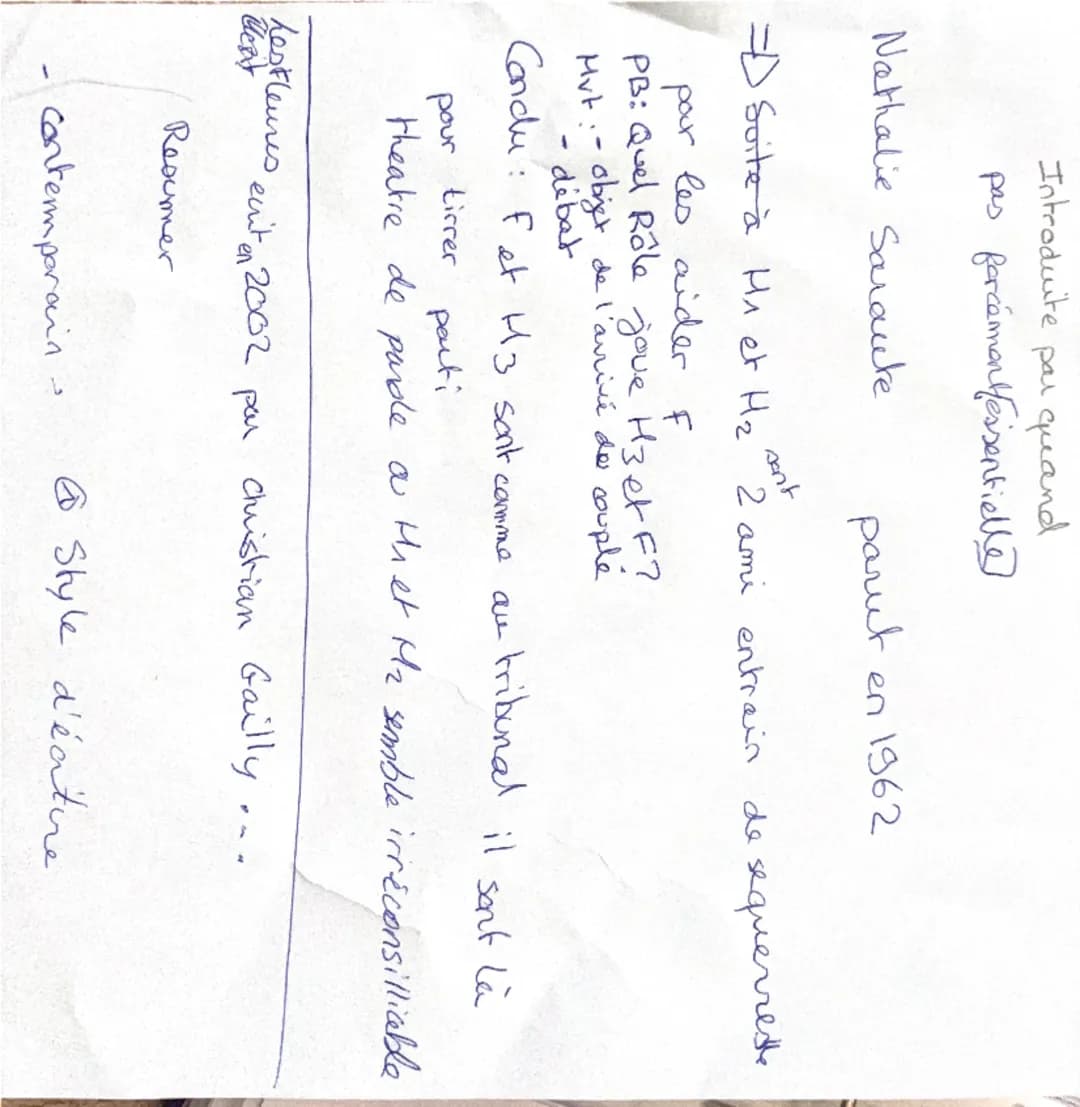 Introduite par quand
pas forcément essentielle
Nathalie Sarraute parut en 1962
=> Suite à H1 et H2 sont 2 ami entrain de
pour les aider F
PB: Quel Rôle joue H3 et F?
Mvt: - objet de l'arrivé de couple
- débat
Conclu: F et H3 sont comme au tribunal il sont là
pour tirrer parti
theatre de parole ou H1 et H2 semble irréconsilliable
Les fleurs ecrit en 2002 par christian Gailly....
Resumer
- contemmporain: Style d'écriture